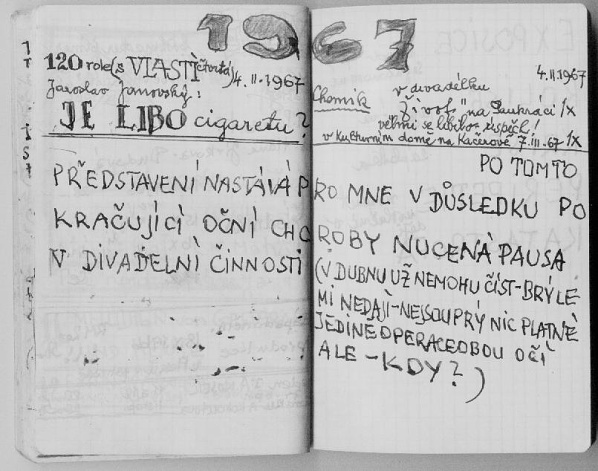 1967
120 role (s VLASTÍ čtvrtá) 4.II.1967
Jaroslav Janovský:
JE LIBO cigaretu?
4.II.1967
Chomik v divadélku
"Život" na Smukráci 1x
velmi se líbilo, úspěch!
v Kulturním domě na Kačerově 7.III.67 1x
PO TOMTO
PŘEDSTAVENÍ NASTÁVÁ PRO MNE V DŮSLEDKU PO
KRAČUJÍCÍ OČNÍ CHOROBY NUCENÁ PAUSA
V DIVADELNÍ ČINNOSTI (V DUBNU UŽ NEMOHU ČÍST-BRÝLE
MI NEDAJÍ-NEJSOU PRÝ NIC PLATNÉ
JEDINĚ OPERACE OBOU OČÍ
ALE - KDY?)